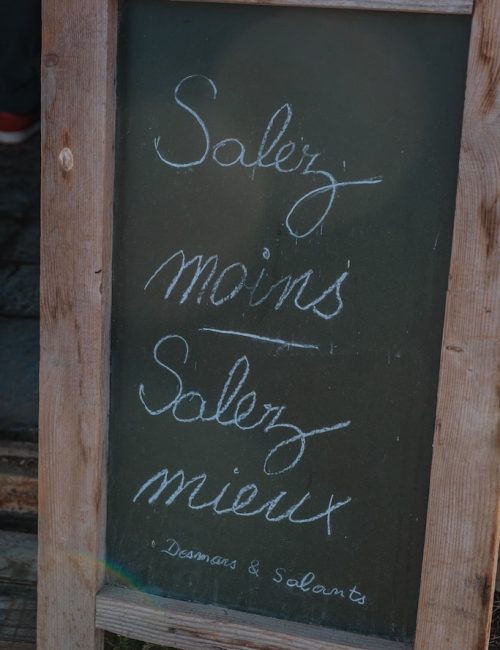 Salez
moins
Salez
mieux
Desmars & Salants